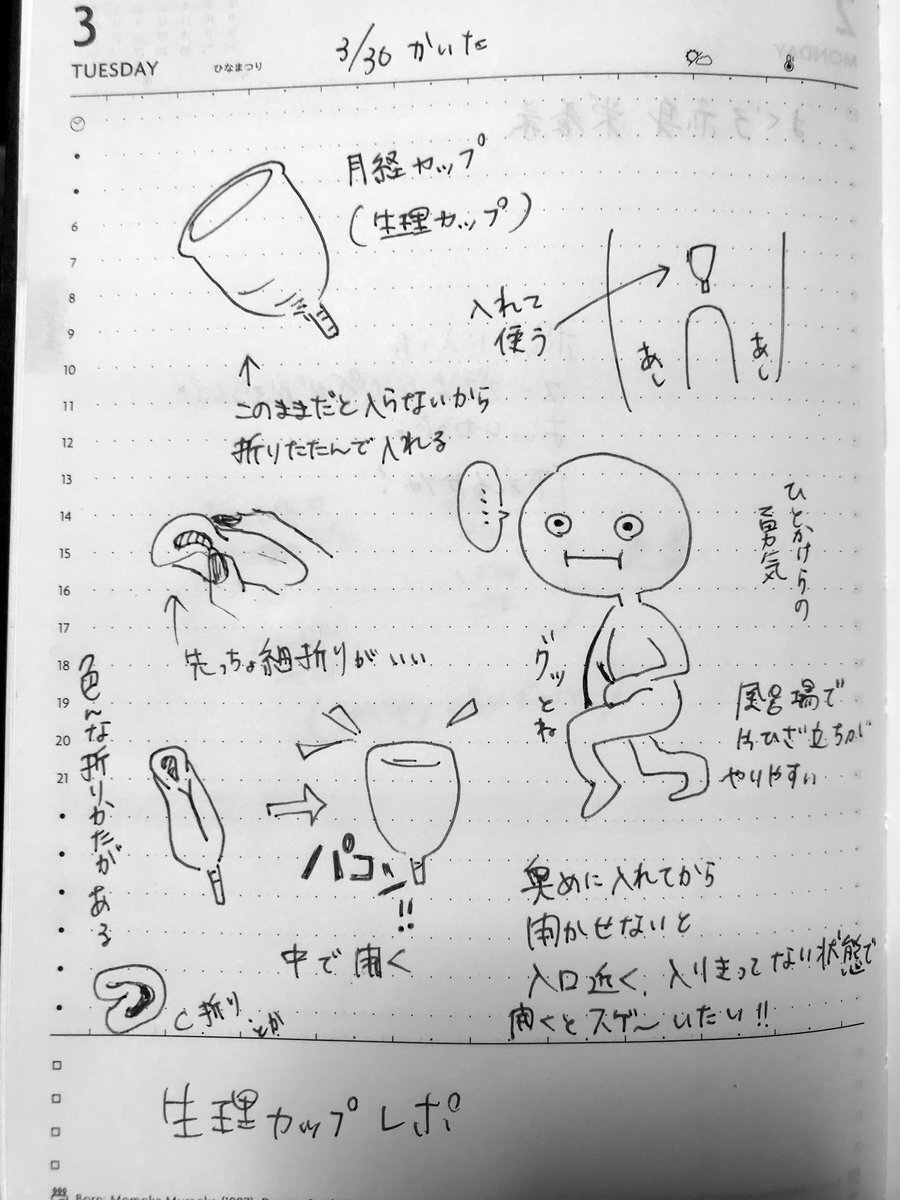 3
TUESDAY
ひなまつり
3/30 かいた
月経カップ
(生理カップ)
入れて
使う
あし
あし
このままだと入らないから
折りたたんで入れる
6
7
8
9
10
11
12
13
14
15
16
17
18
19
20
21
……
ひとかけらの
勇気
先っちょ細折りがいい
グッとね
風呂場で
片ひざ立ちが
やりやすい
色んな折りかたがある
パコッ!!
中で開く
C折り
とか
奥めに入れてから
開かせないと
入口近く、入りきってない状態で
開くとスゲーいたい!!
生理カップレポ